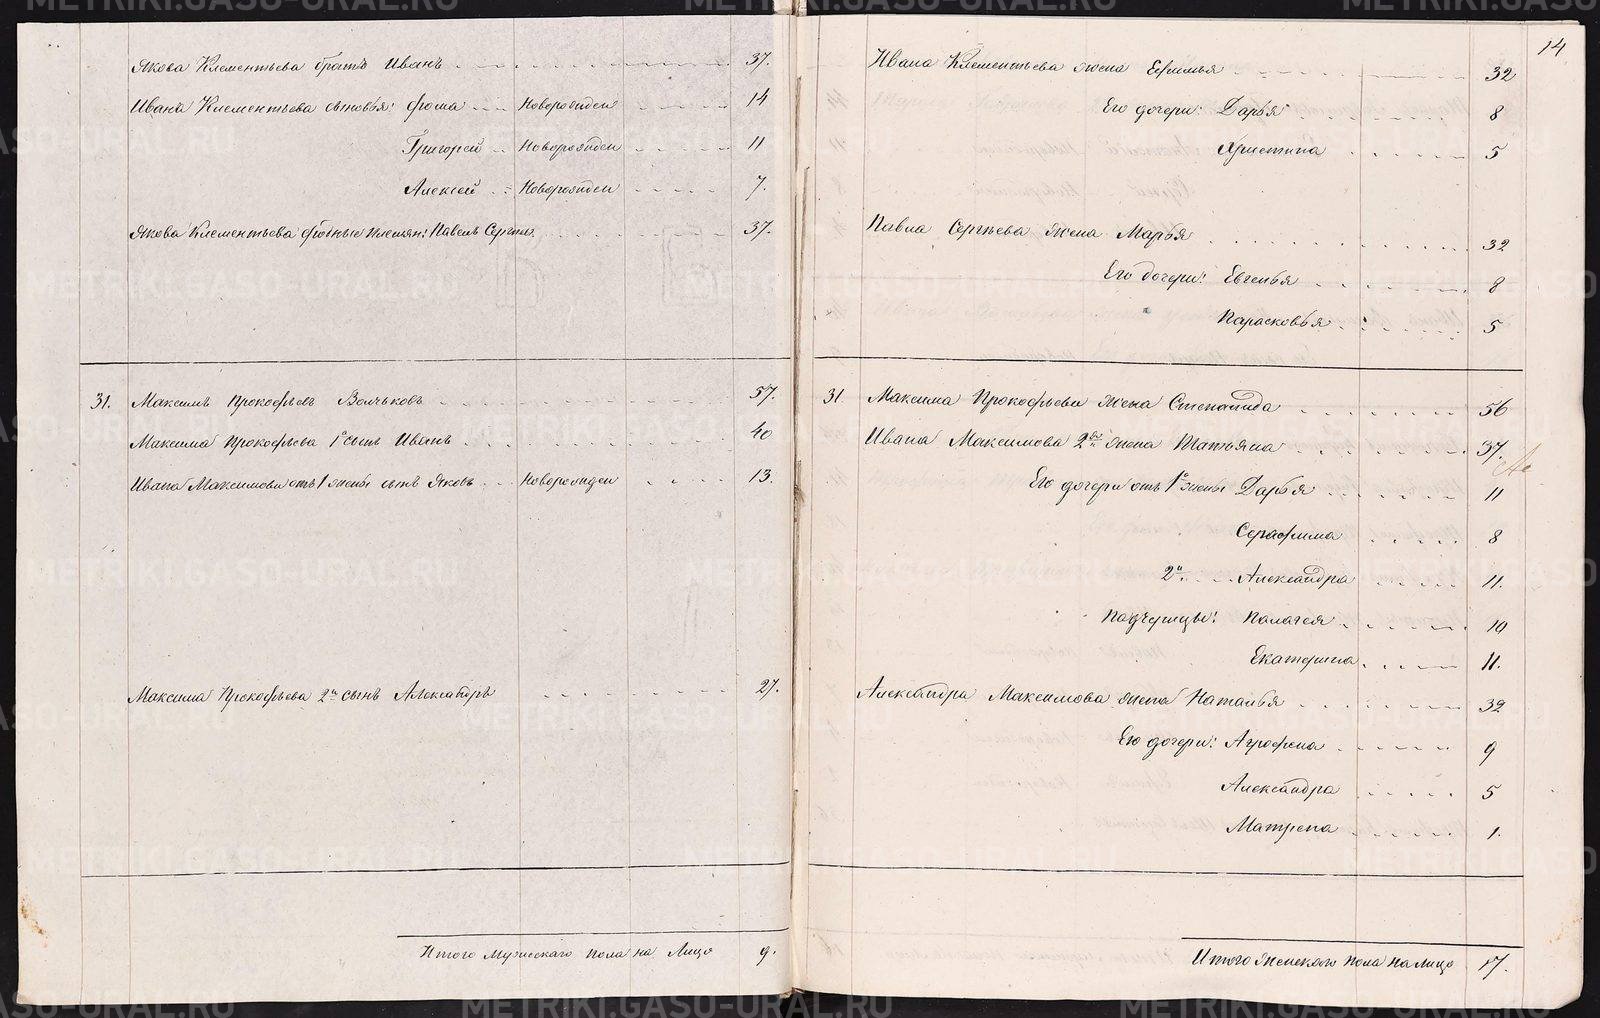 Якова Клементьева братъ Иванъ 37.
Ивана Клементьева сыновья: Фома Новорожден 14
Григорей Новорожден 11
Алексей Новорожден 7.
Якова Клементьева племян: Павелъ Сергеев 37.
31. Максимъ Прокофьевъ Волчьковъ 57.
Максима Прокофьева 1й сынъ Иванъ 40
Ивана Максимова отъ 1 жены сынъ Яковъ Новорожден 13.
Максима Прокофьева 2й сынъ Александръ 27.
Итого мужескаго пола на лицо 9.
14
Ивана Клементьева жена Ефимья 32
Его дочери: Дарья 8
Христина 5
Павла Сергеева жена Марья 32
Его дочери: Евгенья 8
Парасковья 5
31 Максима Прокофьева жена Степанида 56
Ивана Максимова 2я жена Татьяна 37.
Его дочери отъ 1й жены Дарья 11
Серафима 8
2й Александра 11.
Падчерицы: Палагея 19
Екатерина 11.
Александра Максимова жена Наталья 32
Его дочери: Агрофена 9
Александра 5
Матрена 1.
Итого женскаго пола на лицо 17.
METRIKI.GASO-URAL.RU